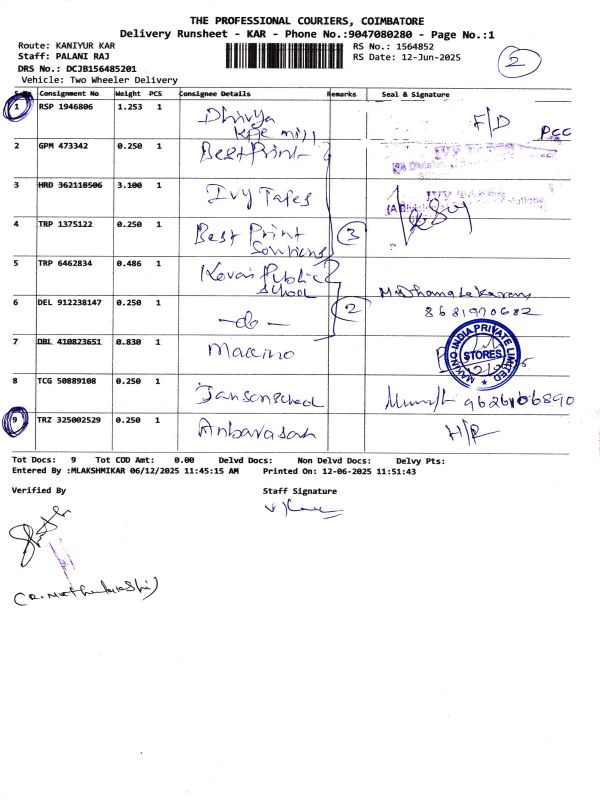 THE PROFESSIONAL COURIERS, COIMBATORE
Delivery Runsheet - KAR - Phone No.:9047080280 - Page No.:1
Route: KANIYUR KAR RS No.: 1564852
Staff: PALANI RAJ RS Date: 12-Jun-2025 2
DRS No.: DCJB156485201
Vehicle: Two Wheeler Delivery
S.No Consignment No Weight PCS Consignee Details Remarks Seal & Signature
1 RSP 1946806 1.253 1 Dhivya F/D PCC
2 GPM 473342 0.250 1 Best Print
3 HRD 362110506 3.100 1 Ivy Tapes IVY TAPES
4 TRP 1375122 0.250 1 Best Print 3
Soutions
5 TRP 6462834 0.486 1 Kovai Public
School
6 DEL 912238147 0.250 1 - do - 2 8681970682
7 DBL 410823651 0.830 1 Maccino MAKINO INDIA PRIVATE LIMITED
STORES
8 TCG 50889108 0.250 1 Janson school
9 TRZ 325002529 0.250 1 Anbarasan H/R
Tot Docs: 9 Tot COD Amt: 0.00 Delvd Docs: Non Delvd Docs: Delvy Pts:
Entered By :MLAKSHMIKAR 06/12/2025 11:45:15 AM Printed On: 12-06-2025 11:51:43
Verified By Staff Signature